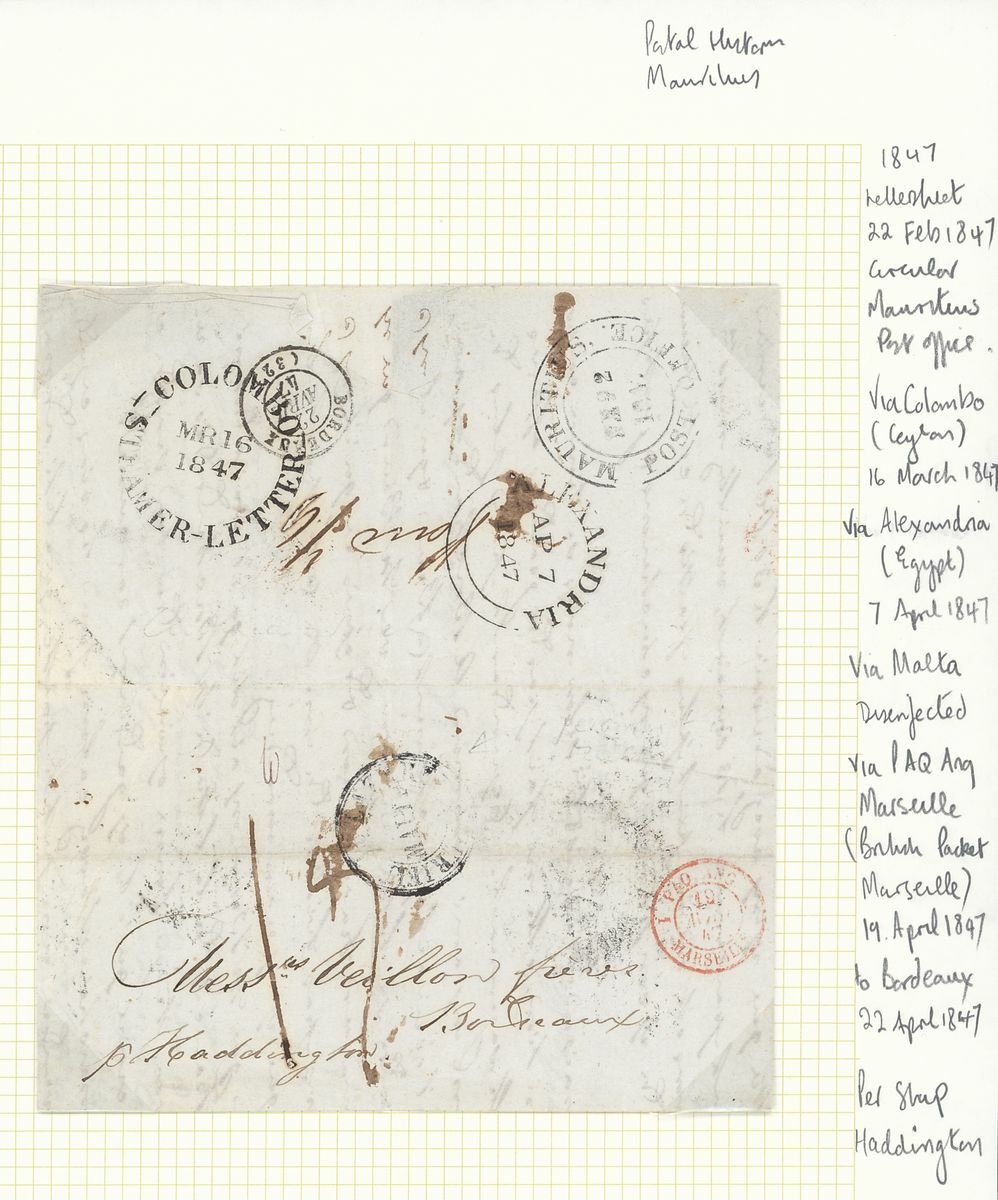 Postal History
Mauritius
1847
Lettersheet
22 Feb 1847
Circular
Mauritius
Post office.
Via Colombo
(Ceylon)
16 March 1847
Via Alexandria
(Egypt)
7 April 1847
Via Malta
Disenfected
Via PAQ Ang
Marseille
(British Packet
Marseille)
19 April 1847
to Bordeaux
22 April 1847
Per Ship
Haddington
AMER-LETTER
COLO
MR 16
1847
BORDEAUX (32)
22
AVRIL
47
MAURITIUS POST OFFICE
1847
ALEXANDRIA
AP 7
1847
Four
PAQ ANG
19
47
MARSEILLE
Messrs Veillon freres
Bordeaux
p Haddington